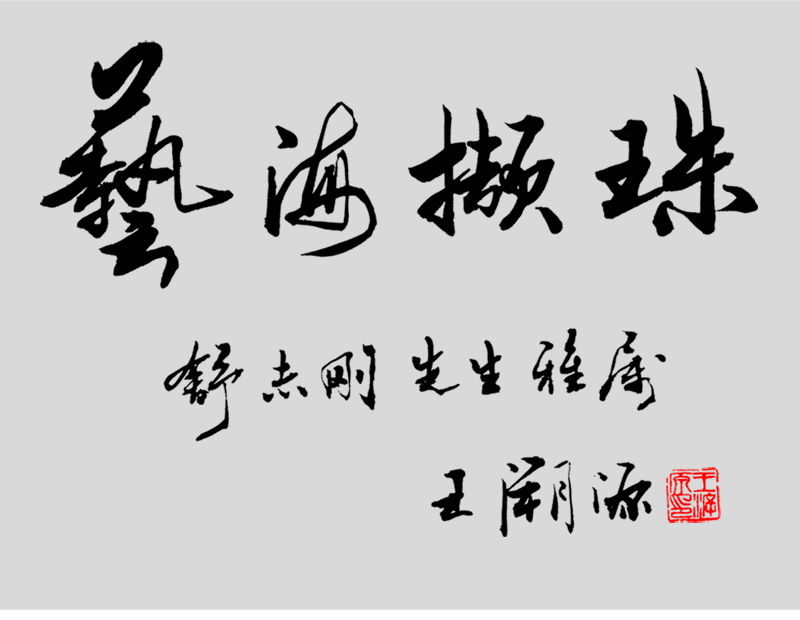 藝海擷珠
舒志刚先生雅属
王溯源